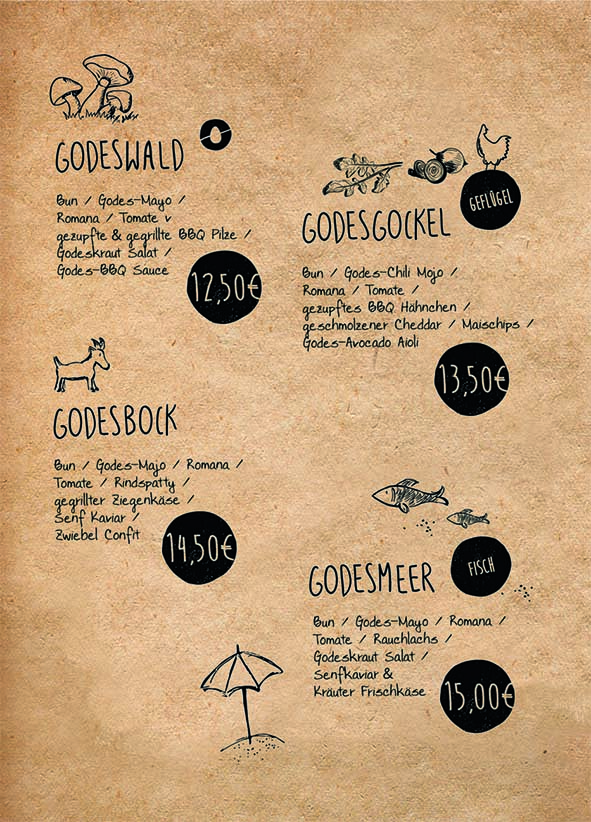 GODESWALD
Bun / Godes-Mayo /
Romana / Tomate v
gezupfte & gegrillte BBQ Pilze /
Godeskraut Salat /
Godes-BBQ Sauce
12,50€
GEFLÜGEL
GODESGOCKEL
Bun / Godes-Chili Mojo /
Romana / Tomate /
gezupftes BBQ Hähnchen /
geschmolzener Cheddar / Maischips /
Godes-Avocado Aioli
13,50€
GODESBOCK
Bun / Godes-Majo / Romana /
Tomate / Rindspatty /
gegrillter Ziegenkäse /
Senf Kaviar /
Zwiebel Confit
14,50€
FISCH
GODESMEER
Bun / Godes-Mayo / Romana /
Tomate / Rauchlachs /
Godeskraut Salat /
Senfkaviar &
Kräuter Frischkäse
15,00€